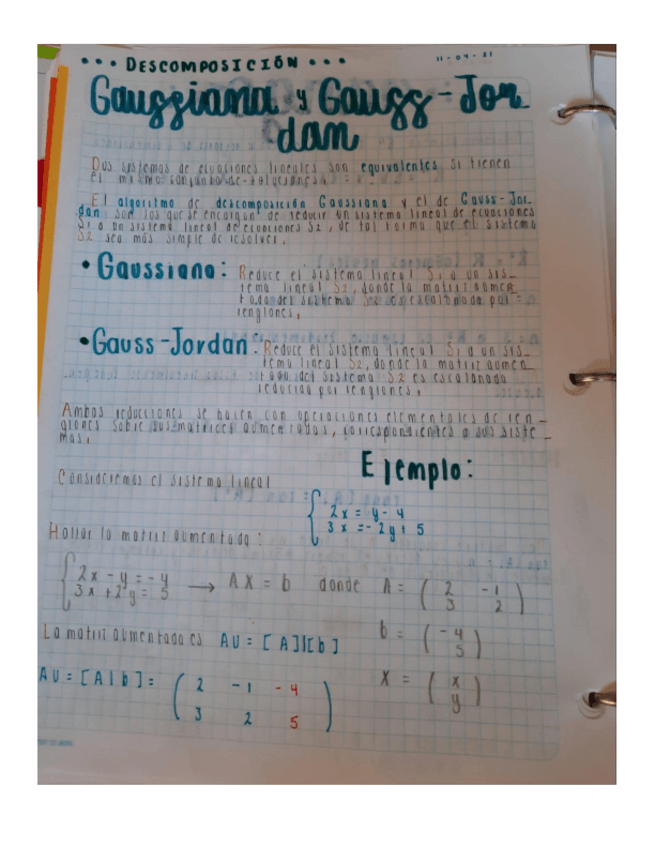 ••• DESCOMPOSICIÓN •••
11-04-21
Gaussiana y Gauss-Jor
dan
Dos sistemas de ecuaciones lineales son equivalentes si tienen
el mismo conjunto de soluciones.
El algoritmo de descomposición Gaussiana y el de Gauss-Jor-
dan son los que se encargan de reducir un sistema lineal de ecuaciones
S1 a un sistema lineal de ecuaciones S2, de tal forma que el sistema
S2 sea más simple de resolver.
• Gaussiana: Reduce el sistema lineal S1 a un sis-
tema lineal S2, donde la matriz aumen
tada del sistema S2 es escalonada por
renglones.
• Gauss-Jordan: Reduce el sistema lineal S1 a un sis-
tema lineal S2, donde la matriz aumen
tada del sistema S2 es escalonada
reducida por renglones.
Ambas reducciones se hacen con operaciones elementales de ren-
glones sobre sus matrices aumentadas, correspondientes a sus siste-
mas.
Ejemplo:
Consideremos el sistema lineal
2x = y - 4
3x = -2y + 5
Hallar la matriz aumentada:
2x - y = -4
3x + 2y = 5
→ AX = b donde A = ( 2 -1
3 2 )
b = ( -4
5 )
La matriz aumentada es Au = [A]|[b]
X = ( x
y )
Au = [A|b] = ( 2 -1 -4
3 2 5 )